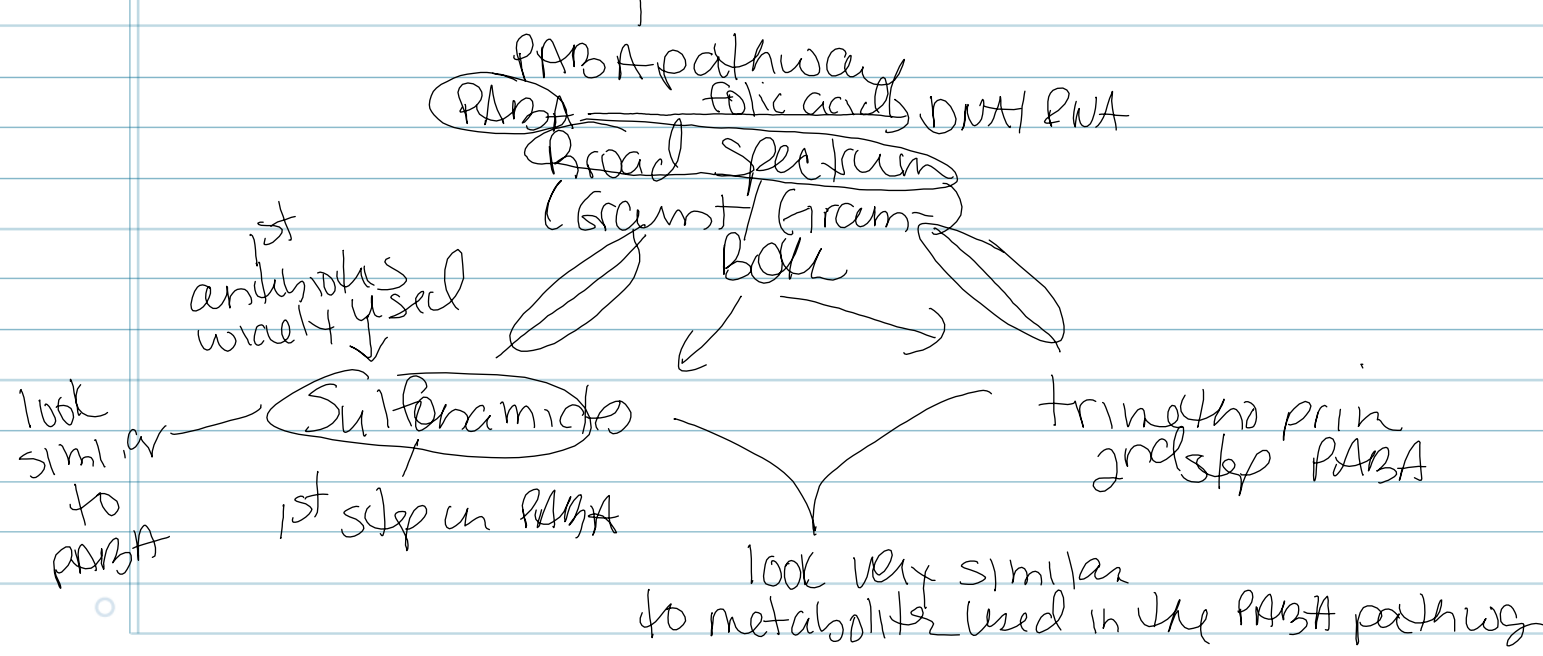 PABA pathway
PABA folic acid DNA/RNA
Broad Spectrum
(Gram+/Gram-)
Both
1st
antibiotics
widely used
Sulfonamides
look
similar
to
PABA
1st step in PABA
trimethoprim
2nd step PABA
look very similar
to metabolites used in the PABA pathway